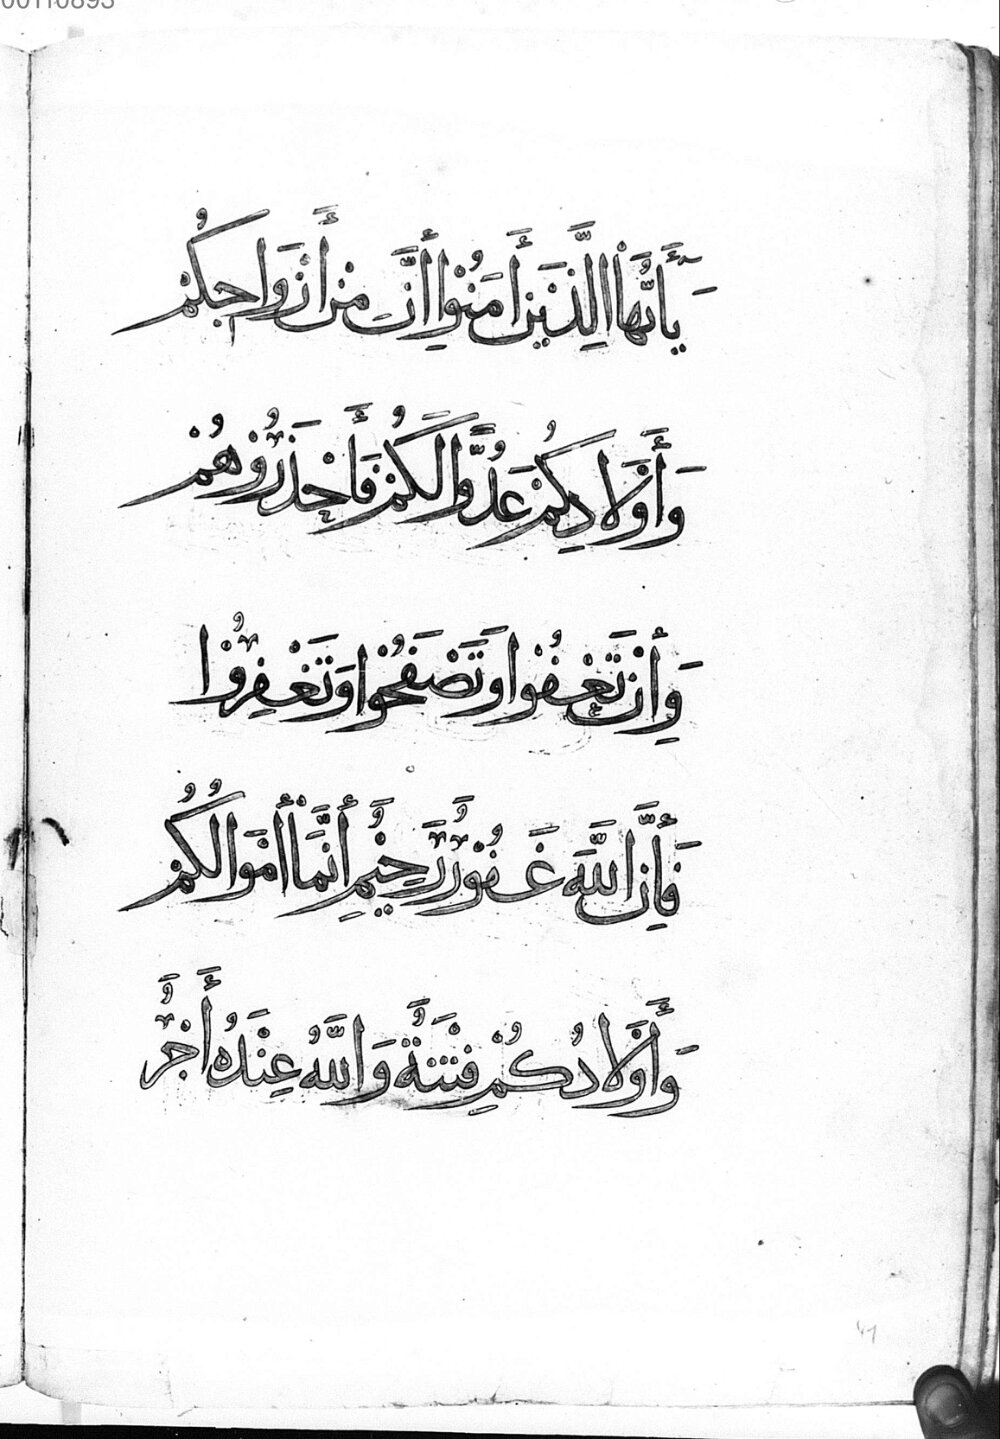 00110893
يَٰٓأَيُّهَا ٱلَّذِينَ أَمَنُوٓا۟ إِنَّ مِنْ أَزْوَاجِكُمْ
وَأَوْلَادِكُمْ عَدُوًّا لَكُمْ فَاحْذَرُوهُمْ
وَإِنْ تَعْفُوا وَتَصْفَحُوا وَتَغْفِرُوا
فَإِنَّ اللَّهَ غَفُورٌ رَحِيمٌ إِنَّمَا أَمْوَالُكُمْ
وَأَوْلَادُكُمْ فِتْنَةٌ وَاللَّهُ عِنْدَهُ أَجْرٌ